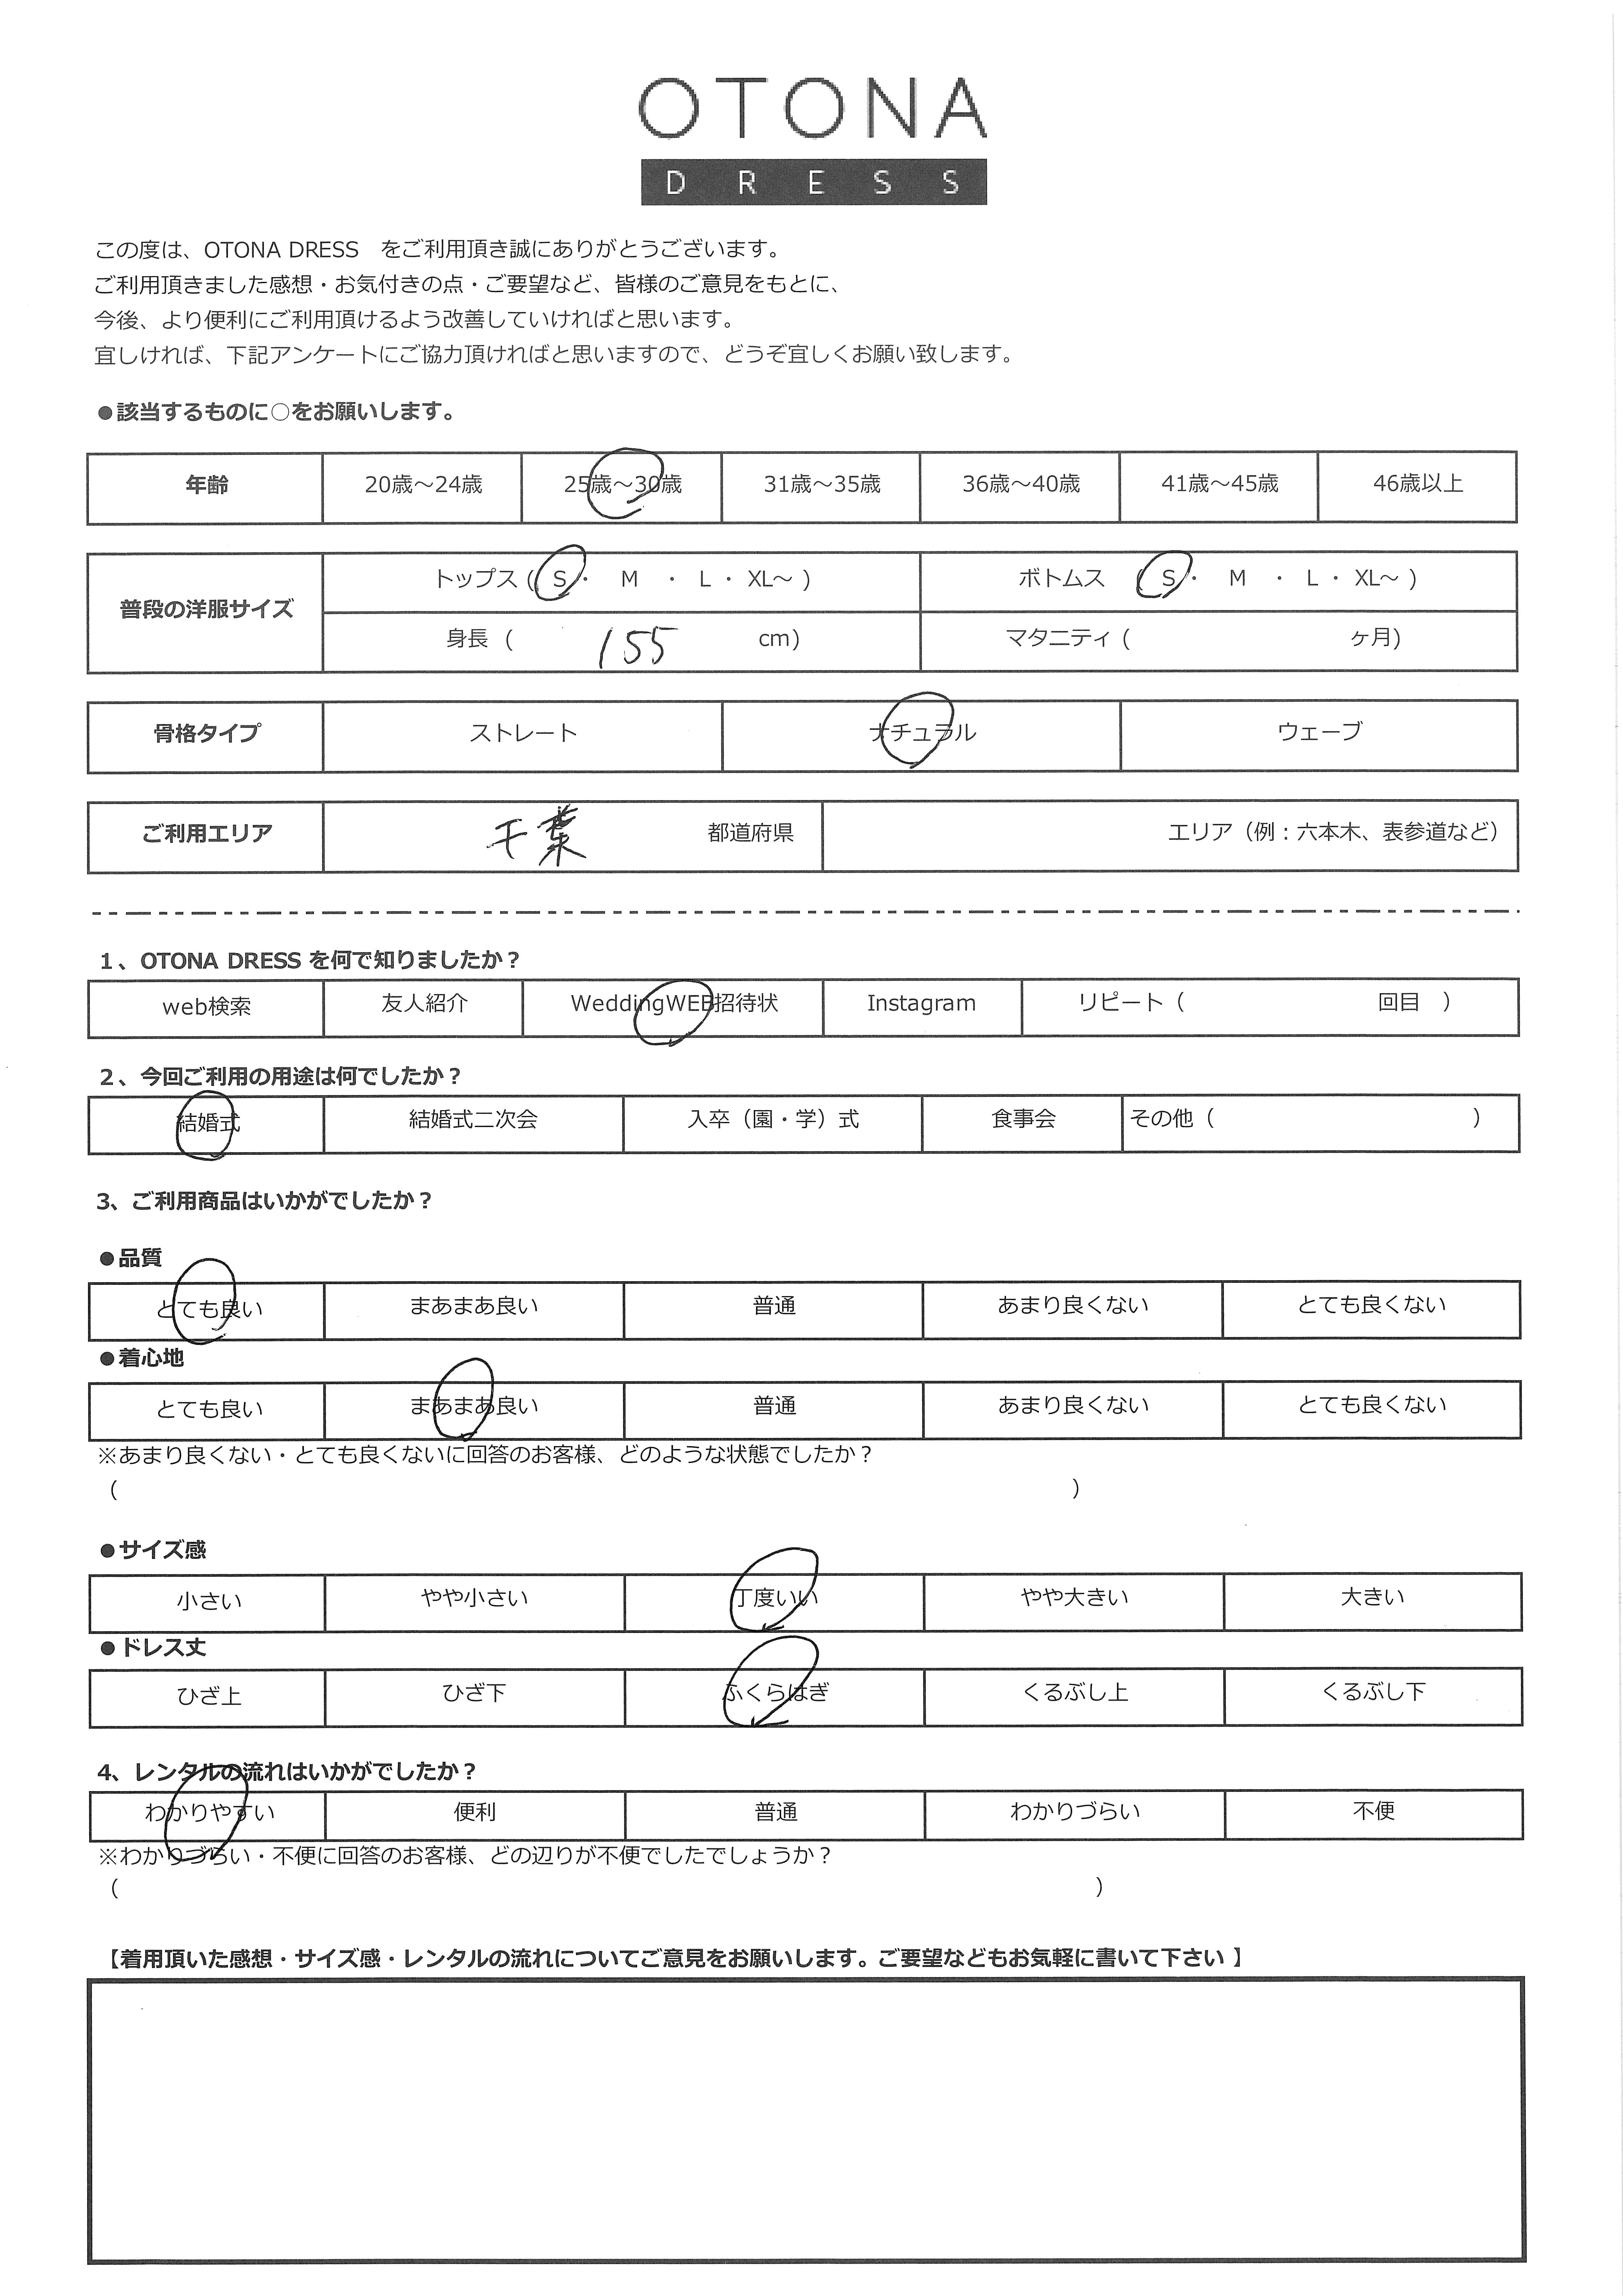 OTONA
DRESS
この度は、OTONA DRESS　をご利用頂き誠にありがとうございます。
ご利用頂きました感想・お気付きの点・ご要望など、皆様のご意見をもとに、
今後、より便利にご利用頂けるよう改善していければと思います。
宜しければ、下記アンケートにご協力頂ければと思いますので、どうぞ宜しくお願い致します。
●該当するものに○をお願いします。
年齢 20歳～24歳 25歳～30歳 31歳～35歳 36歳～40歳 41歳～45歳 46歳以上
普段の洋服サイズ トップス ( S ・ M ・ L ・ XL～ ) ボトムス ( S ・ M ・ L ・ XL～ )
身長 ( 155 cm) マタニティ ( ヶ月)
骨格タイプ ストレート ナチュラル ウェーブ
ご利用エリア 千葉 都道府県 エリア（例：六本木、表参道など）
1、OTONA DRESS を何で知りましたか？
web検索 友人紹介 WeddingWEB招待状 Instagram リピート（ 回目 ）
2、今回ご利用の用途は何でしたか？
結婚式 結婚式二次会 入卒（園・学）式 食事会 その他（ ）
3、ご利用商品はいかがでしたか？
●品質
とても良い まあまあ良い 普通 あまり良くない とても良くない
●着心地
とても良い まあまあ良い 普通 あまり良くない とても良くない
※あまり良くない・とても良くないに回答のお客様、どのような状態でしたか？
（ ）
●サイズ感
小さい やや小さい 丁度いい やや大きい 大きい
●ドレス丈
ひざ上 ひざ下 ふくらはぎ くるぶし上 くるぶし下
4、レンタルの流れはいかがでしたか？
わかりやすい 便利 普通 わかりづらい 不便
※わかりづらい・不便に回答のお客様、どの辺りが不便でしたでしょうか？
（ ）
【着用頂いた感想・サイズ感・レンタルの流れについてご意見をお願いします。ご要望などもお気軽に書いて下さい 】